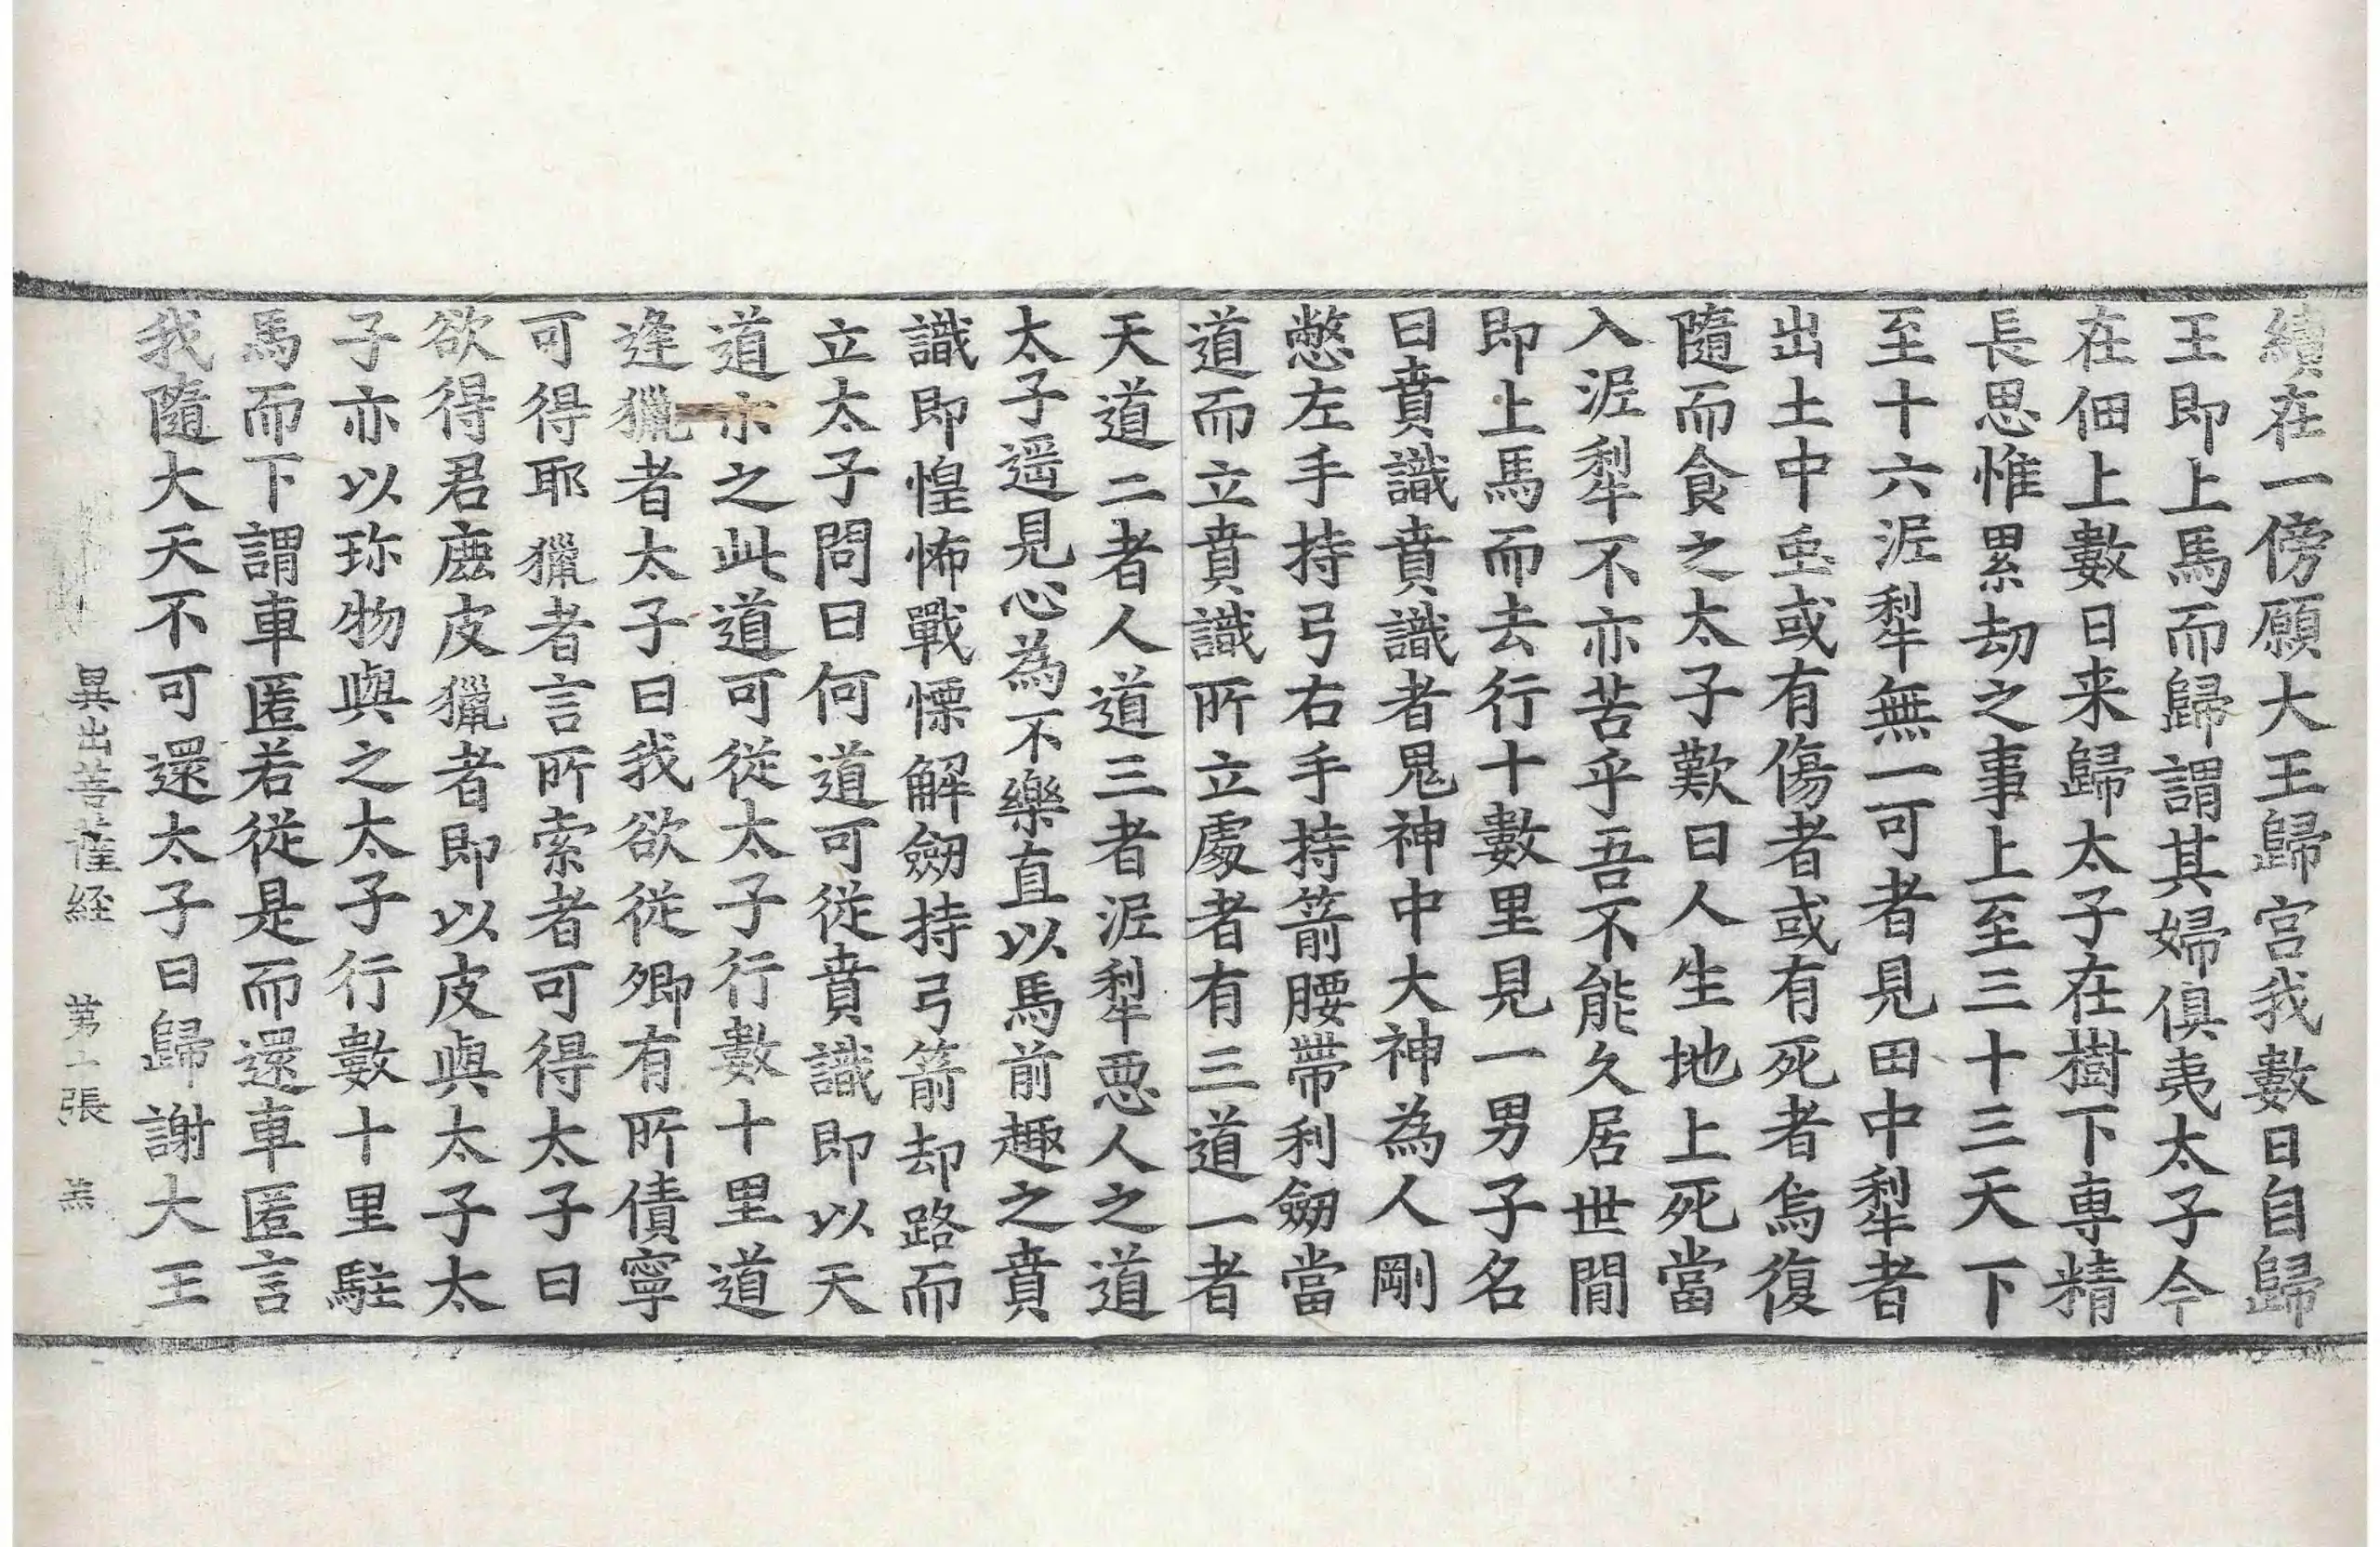 續在一傍願大王歸宮我數日自歸
王即上馬而歸謂其婦俱夷太子今
在佃上數日来歸太子在樹下専精
長思惟累劫之事上至三十三天下
至十六泥犁無一可者見田中犁者
出土中䖝或有傷者或有死者烏復
隨而食之太子歎曰人生地上死當
入泥犁不亦苦乎吾不能久居世間
即上馬而去行十數里見一男子名
曰賁識賁識者鬼神中大神為人剛
憋左手持弓右手持箭腰帶利劒當
道而立賁識所立處者有三道一者
天道二者人道三者泥犁惡人之道
太子遥見心為不樂直以馬前趣之賁
識即惶怖戰慄解劒持弓箭却路而
立太子問曰何道可従賁識即以天
道亦之此道可従太子行數十里道
逢獵者太子曰我欲従卿有所債寧
可得耶獵者言所索者可得太子曰
欲得君鹿皮獵者即以皮與太子太
子亦以珎物與之太子行數十里駐
馬而下謂車匿若従是而還車匿言
我隨大天不可還太子曰歸謝大王
異出菩薩経 第十張